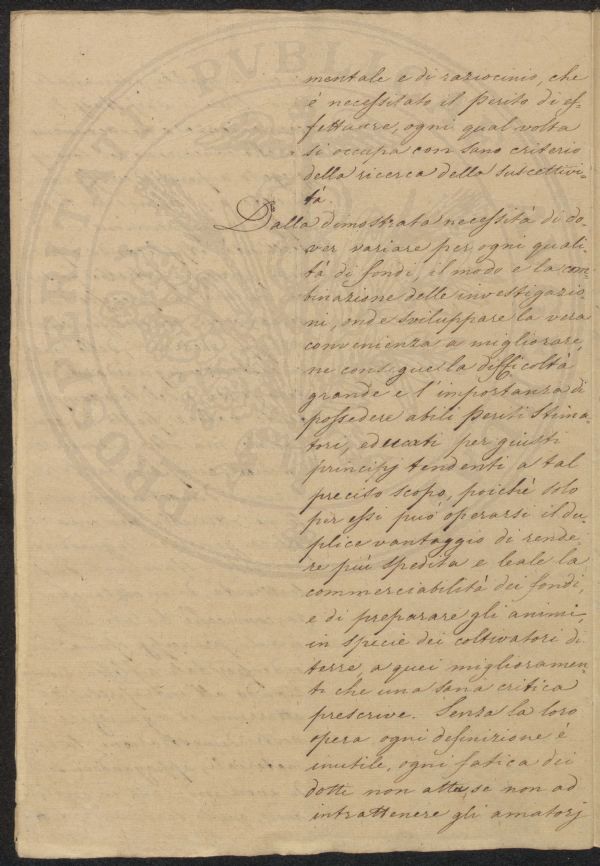 mentale e di raziocinio, che
è necessitato il Perito di ef-
fettuare, ogni qual volta
si occupa con sano criterio
della ricerca della suscettivi-
tà.
Dalla dimostrata necessità di do-
ver variare per ogni quali-
tà di fondi, il modo e la com-
binazione delle investigazio-
ni, onde sviluppare la vera
convenienza a migliorare,
ne consegue la difficoltà
grande e l'importanza di
possedere abili Periti Stima-
tori, educati per giusti
principj tendenti a tal
preciso scopo, poichè solo
per essi può operarsi il du-
plice vantaggio di rende-
re più spedita e leale la
commerciabilità dei fondi,
e di preparare gli animi,
in specie dei coltivatori di
terre, a quei miglioramen-
ti che una sana critica
prescrive. Senza la loro
opera ogni definizione è
inutile, ogni fatica dei
dotti non atta, se non ad
intrattenere gli amatorj
PROSPERITAT PVBLIC